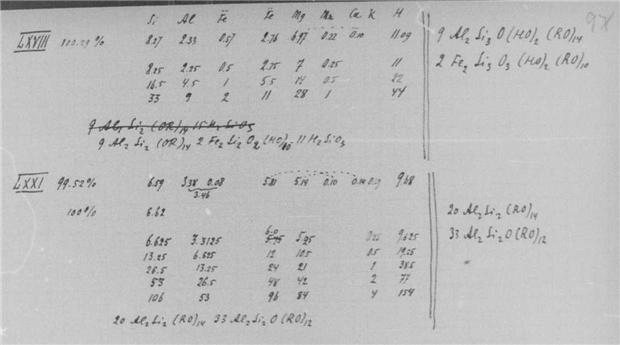 Si Al Fe Fe Mg Mn Ca K H
LXVIII 100.29% 8.27 2.33 0.57 2.76 6.97 0.22 0.10 11.09
8.25 2.25 0.5 2.75 7 0.25 11
16.5 4.5 1 5.5 14 0.5 22
33 9 2 11 28 1 44
9 Al2 Si2 (OR)14 15 H2 SiO3
9 Al2 Si2 (OR)14 2 Fe2 Si2 O2 (HO)10 11 H2 SiO3
9 Al2 Si3 O (HO)2 (RO)14
2 Fe2 Si3 O3 (HO)2 (RO)10
LXXI 99.52% 6.59 3.38 0.08 5.81 5.14 0.10 9.68
3.46
100% 6.62
6.0
6.625 3.3125 5.75 5.25 0.25 9.625
13.25 6.625 12 10.5 0.5 19.25
26.5 13.25 24 21 1 38.5
53 26.5 48 42 2 77
106 53 96 84 4 154
20 Al2 Si2 (RO)14 33 Al2 Si2 O (RO)12
20 Al2 Si2 (RO)14
33 Al2 Si2 O (RO)12